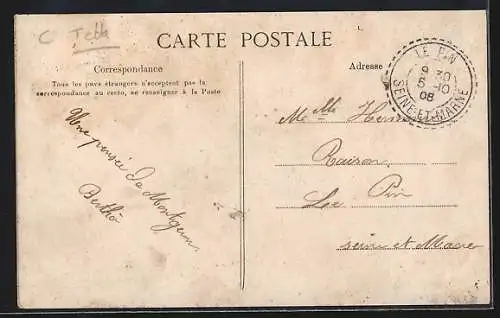 C
CARTE POSTALE
Correspondance
Tous les pays étrangers n'acceptent pas la
correspondance au recto, se renseigner à la Poste
Une pensée de Montgeron
Berthe
Adresse
LE PIN
9 30
5 - 10
08
SEINE-ET-MARNE
Melle
Raison
Le Pin
seine et Marne